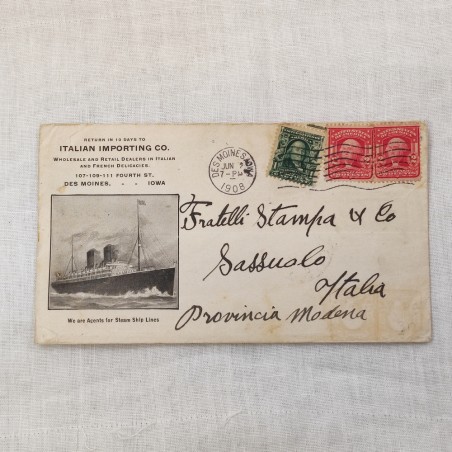 RETURN IN 10 DAYS TO
ITALIAN IMPORTING CO.
WHOLESALE AND RETAIL DEALERS IN ITALIAN
AND FRENCH DELICACIES.
107-109-111 FOURTH ST.
DES MOINES, - - IOWA
We are Agents for Steam Ship Lines
DES MOINES, IOWA
JUN
7-PM
1908
Fratelli Stampa & Co
Sassuolo
Italia
Provincia Modena